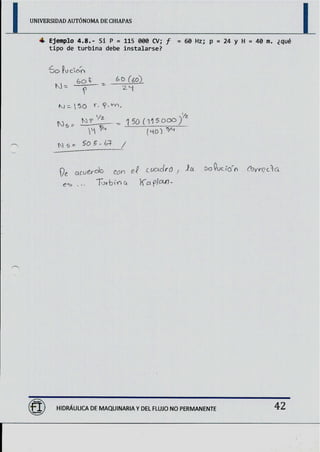 UNIVERSIDAD AUTÓNOMA DE CHIAPAS
Ejemplo 4.8.- Si P = 115 000 CV; f = 60 Hz; p = 24 y H = 40 m. ¿qué
tipo de turbina debe instalarse?
Solución
N = 60 f / p = 60 (60) / 24
N = 150 r.p.m.
Ns = N P^1/2 / H^5/4 = 150 (115000)^1/2 / (40)^5/4
Ns = 505.67 /
De acuerdo con el cuadro, la solución correcta
es ... Turbina Kaplan.
HIDRÁULICA DE MAQUINARIA Y DEL FLUJO NO PERMANENTE 42